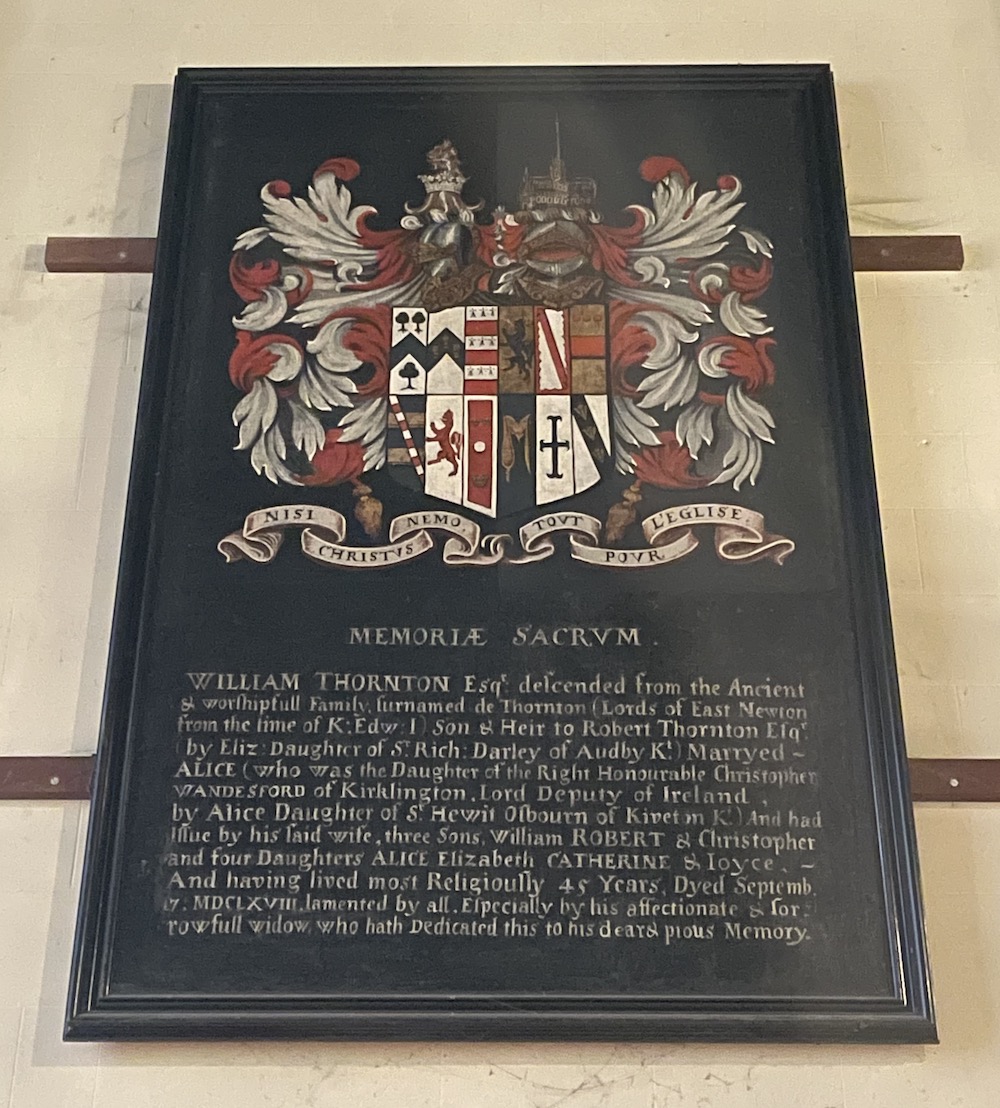 NISI CHRISTVS NEMO. TOVT POVR L'EGLISE.
MEMORIÆ SACRVM.
WILLIAM THORNTON Esqr. deſcended from the Ancient
& worſhipfull Family, ſurnamed de Thornton (Lords of East Newton
from the time of K: Edw: I) Son & Heir to Robert Thornton Eſqr.
(by Eliz: Daughter of Sr. Rich: Darley of Audby Kt.) Marryed ~
ALICE (who was the Daughter of the Right Honourable Christopher
WANDESFORD of Kirklington, Lord Deputy of Ireland,
by Alice Daughter of Sr Hewit Oſbourn of Kiveton Kt.) And had
Iſſue by his ſaid wife, three Sons, William ROBERT & Christopher
and four Daughters ALICE Elizabeth CATHERINE & Ioyce. ~
And having lived most Religiouſly 45 Years, Dyed Septemb.
17: MDCLXVIII, lamented by all, Eſpecially by his affectionate & ſor:
rowfull widow, who hath Dedicated this to his dear & pious Memory.